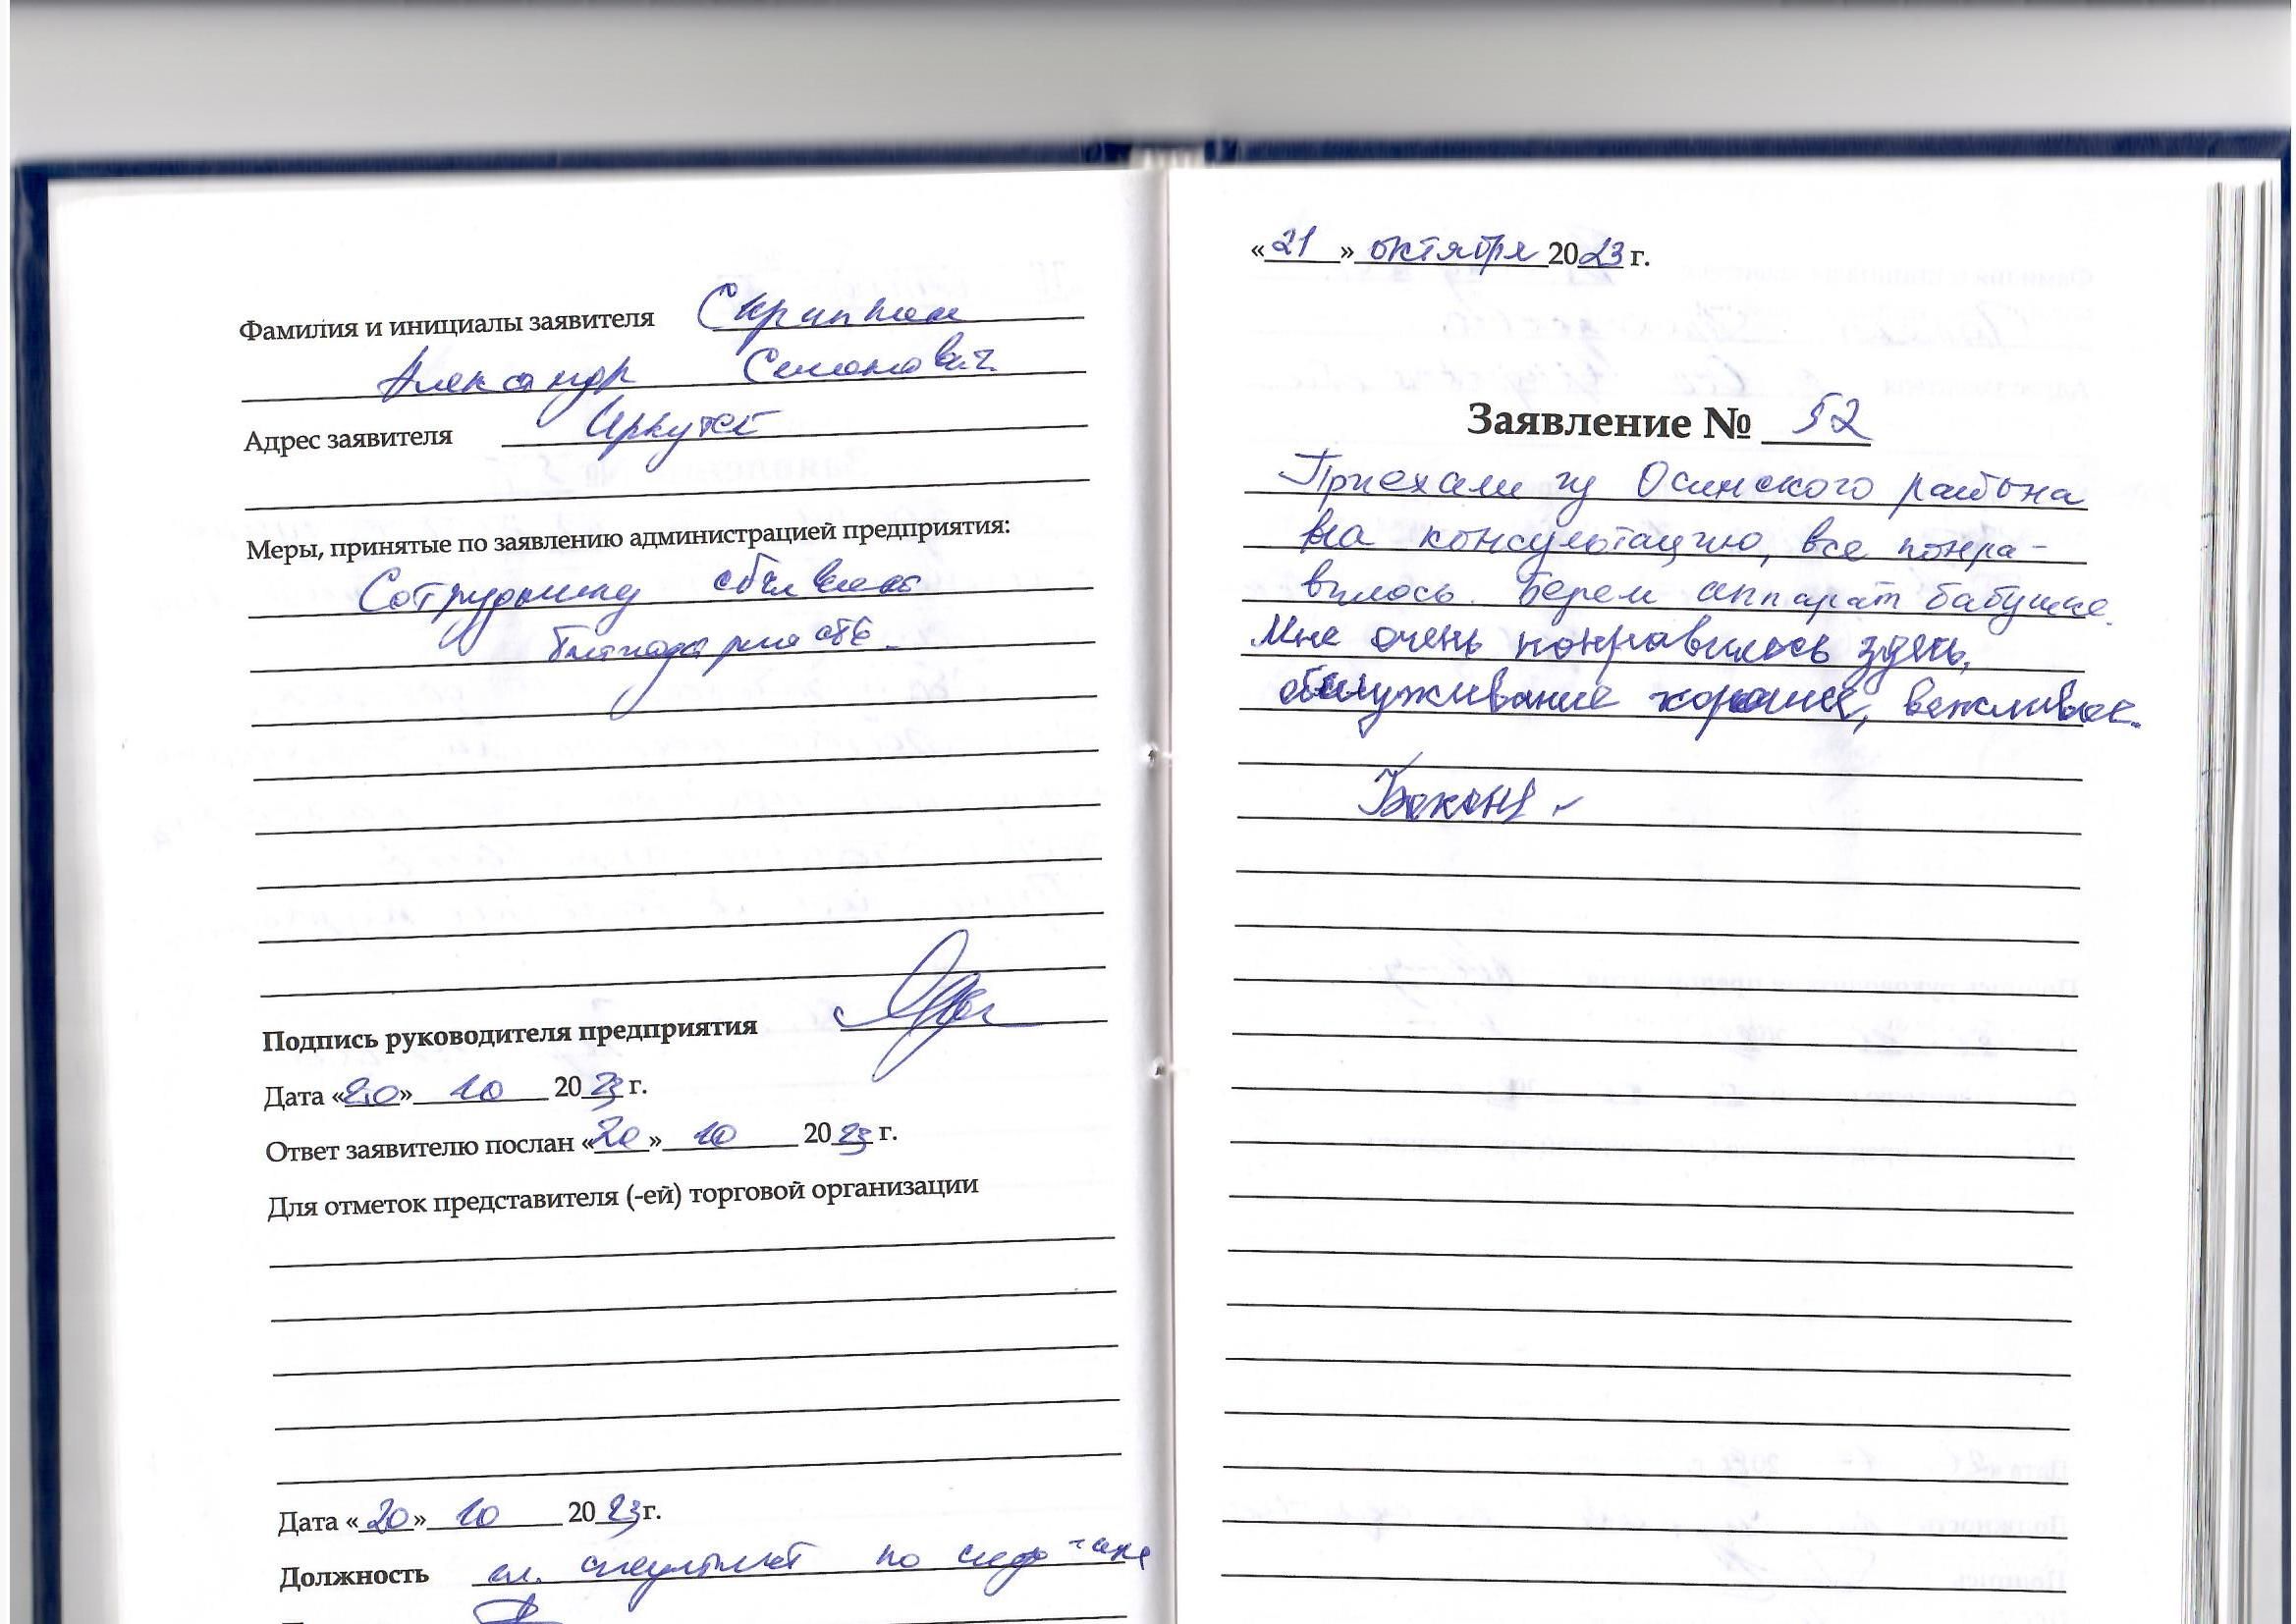 Фамилия и инициалы заявителя
Александр Семенович
Адрес заявителя Иркутск
Меры, принятые по заявлению администрацией предприятия:
Сотруднику объявлена
благодарность
Подпись руководителя предприятия
Дата «20» 10 2023 г.
Ответ заявителю послан «20» 10 2023 г.
Для отметок представителя (-ей) торговой организации
Дата «20» 10 2023 г.
Должность специалист по
«21» октября 2023 г.
Заявление № 52
Приехали из Осинского района
на консультацию, все понра-
вилось. Берем аппарат бабушке.
Мне очень понравилось здесь,
обслуживание хорошее, вежливое.